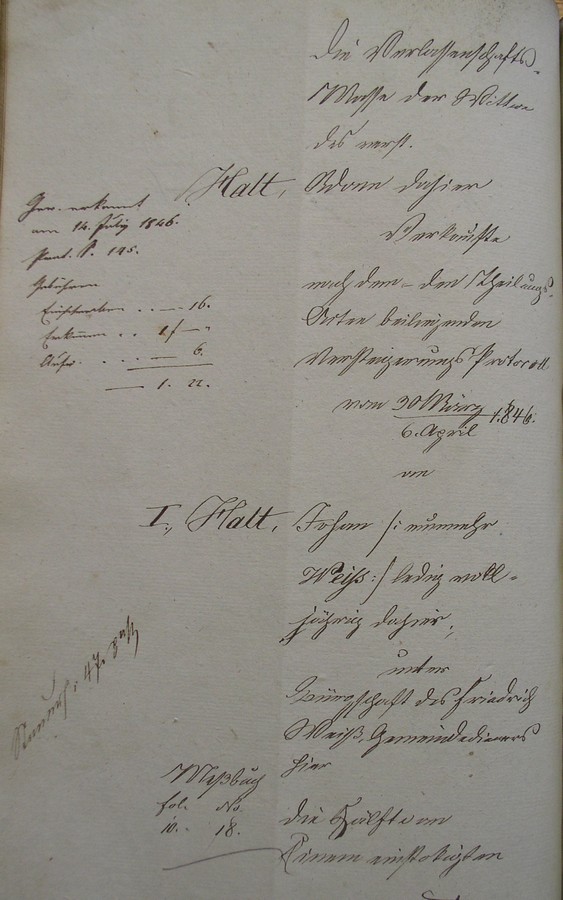 die Verlassenschafts-
Masse der Wittwe
des verst.
Halt, Adam dahier
Verkaufte
nach dem - den Theilungs-
Acten beiliegenden
Versteigerungs Protocoll
vom 30 März 1846.
6. April
an
I., Halt, Johan /: nunmehr
Weiß :/ ledig voll-
jährig dahier,
unter
Bürgschaft des Friedrich
Weiß, Gemeindedieners
hier
die Hälfte an
Einem einstokigten
Gew. erkannt
am 14. July 1846.
S. 195.
Gebühren
Einschreiben . . — 16.
Erkennen . . 1/ — „
. . . . — 6.
— 1. 22.
47.
Meßbuch
fol. No.
10. 18.